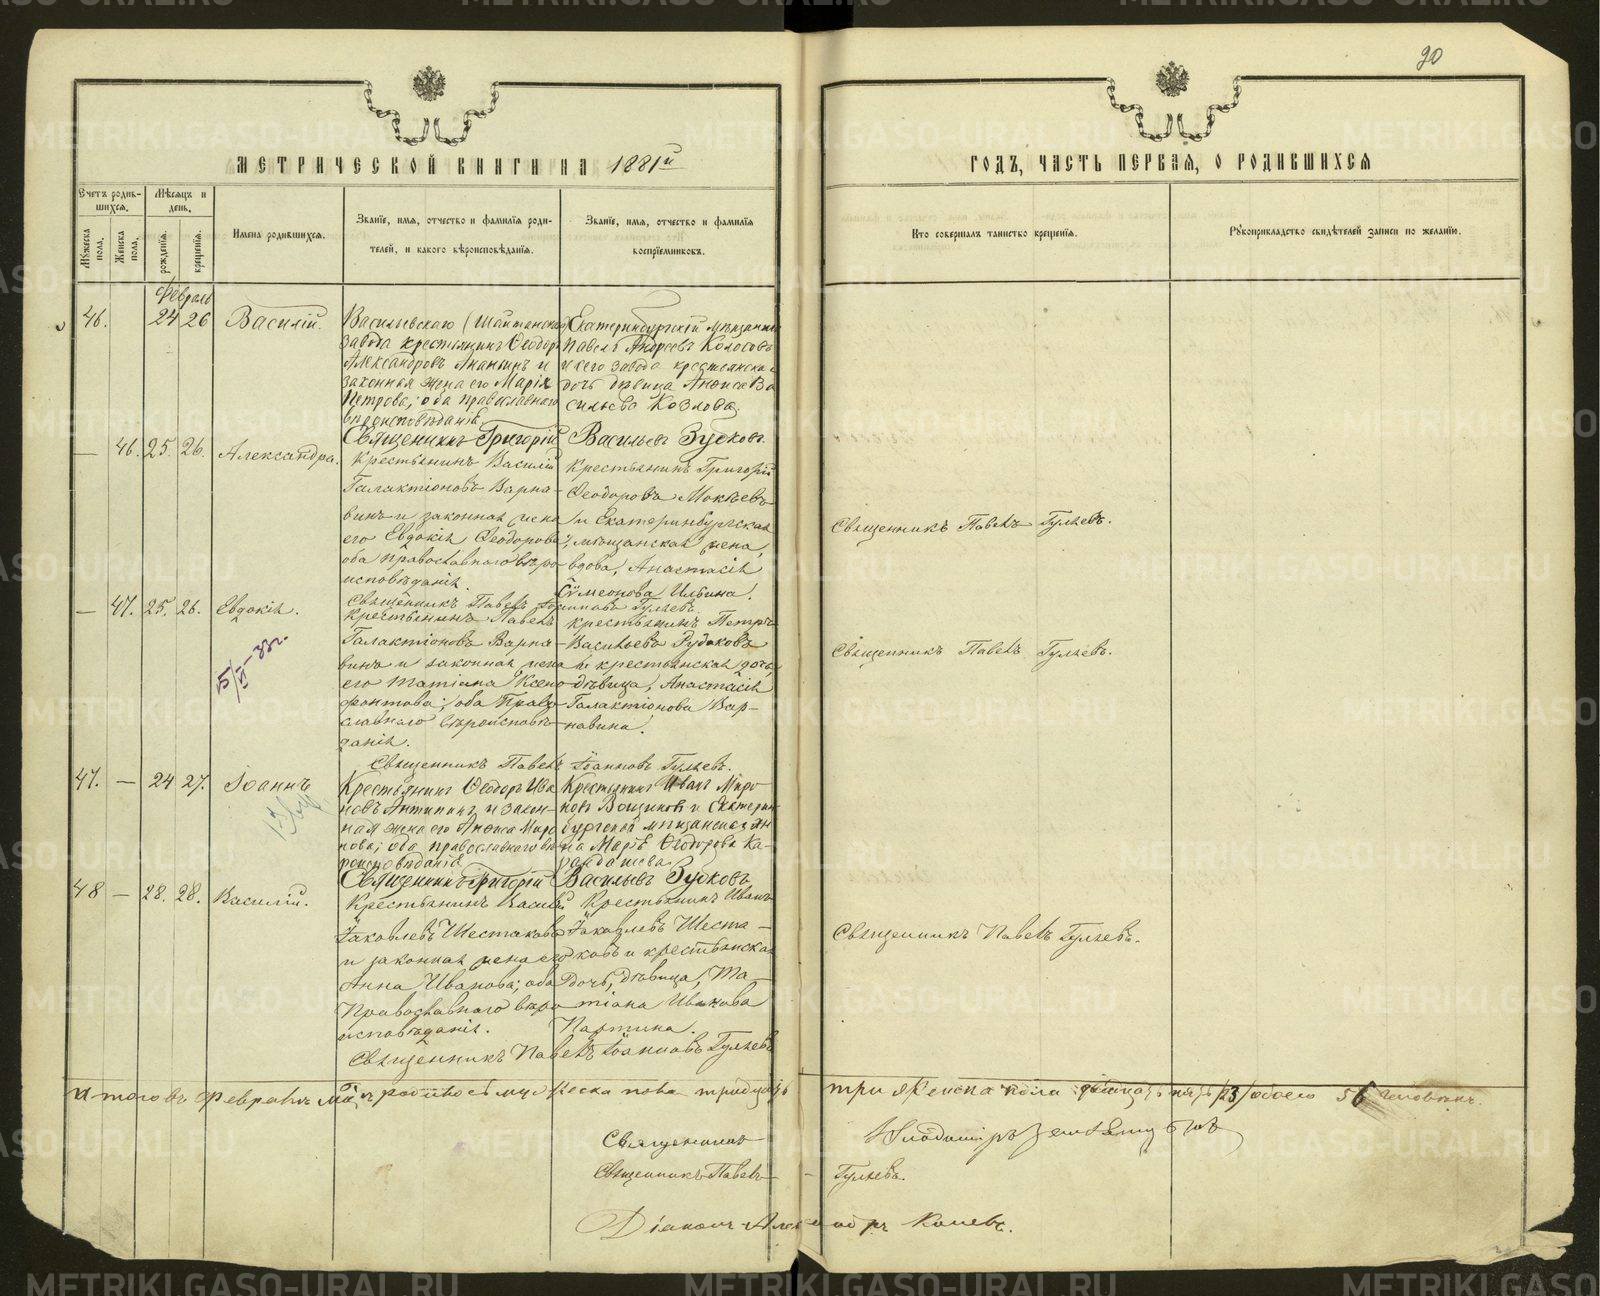 90
МЕТРИЧЕСКОЙ КНИГИ НА 1881й
ГОДЪ, ЧАСТЬ ПЕРВАЯ, О РОДИВШИХСЯ
Счетъ родив-
шихся.
Мѣсяцъ и
день.
Мужеска
пола.
Женска
пола.
рожденія.
крещенія.
Имена родившихся.
Званіе, имя, отчество и фамилія роди-
телей, и какого вѣроисповѣданія.
Званіе, имя, отчество и фамилія
воспріемниковъ.
Кто совершалъ таинство крещенія.
Рукоприкладство свидѣтелей записи по желанію.
Февраль
46. 24 26 Василій.
Васильевскаго (Шайтанскаго)
завода крестьянинъ Ѳеодоръ
Александровъ Ананьинъ и
законная жена его Марія
Петрова; оба православнаго
вѣроисповѣданія
Екатеринбургскій мѣщанинъ
Павелъ Андреевъ Колосовъ
и сего завода крестьянская
дочь дѣвица Анѳиса Ва
сильева Козлова.
Священникъ Григорій Васильевъ Зубковъ.
— 46. 25. 26. Александра.
Крестьянинъ Василій
Галактіоновъ Варна-
винъ и законная жена
его Евдокія Ѳеодорова;
оба православнаго вѣро
исповѣданія.
Крестьянинъ Григорій
Ѳеодоровъ Мокѣевъ
и Екатеринбургская
мѣщанская жена,
вдова, Анастасія
Сѵмеонова Ильина.
Священникъ Павелъ Іоанновъ Гуляевъ.
Священникъ Павелъ Гуляевъ.
— 47. 25. 26. Евдокія.
Крестьянинъ Павелъ
Галактіоновъ Варна-
винъ и законная жена
его Татіана Ксено
фонтова; оба Право
славнаго вѣроисповѣ
данія.
крестьянинъ Петръ
Васильевъ Рудаковъ
и крестьянская дочь,
дѣвица, Анастасія
Галактіонова Вар-
навина.
Священникъ Павелъ Іоанновъ Гуляевъ.
Священникъ Павелъ Гуляевъ.
47. — 24 27. Іоаннъ
Крестьянинъ Ѳеодоръ Ива
новъ Антипинъ и закон-
ная жена его Анѳиса Миро
нова; оба православнаго вѣ
роисповѣданія
Крестьянинъ Иванъ Миро
новъ Вощиковъ и Екатерин
бургская мѣщанская
Марія Ѳеодорова Ка-
рандашева
Священникъ Григорій Васильевъ Зубковъ
48 — 28. 28. Василій.
Крестьянинъ Василій
Іаковлевъ Шестаковъ
и законная жена его
Анна Иванова; оба
Православнаго вѣро
исповѣданія.
Крестьянинъ Иванъ
Іаковлевъ Шеста-
ковъ и крестьянская
дочь, дѣвица, Та-
тіана Иванова
Партина.
Священникъ Павелъ Іоанновъ Гуляевъ
Священникъ Павелъ Гуляевъ.
Итого въ Февралѣ м-цѣ родилось мужеска пола тридцать три женска пола двадцать /23/ обоего 56 человѣкъ.
Священникъ Владиміръ
Священникъ Павелъ Гуляевъ.
Діаконъ Александръ Коневъ.